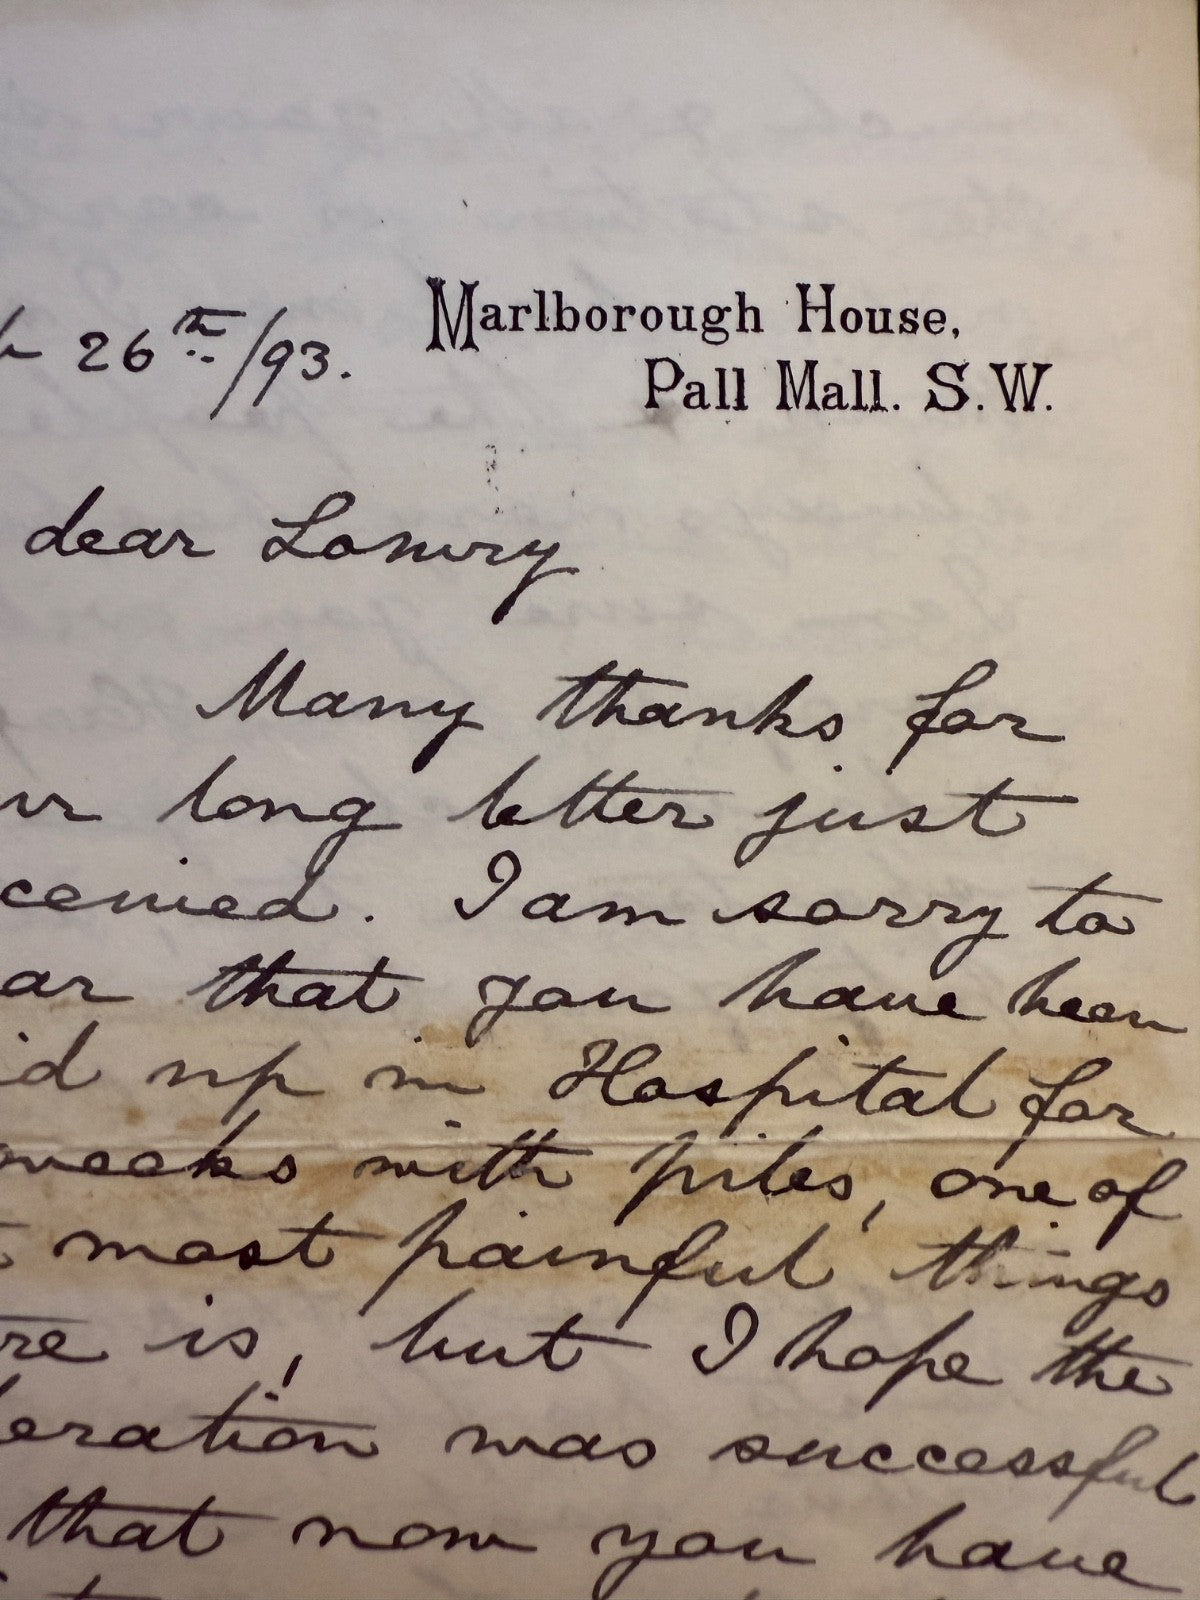 Marlborough House,
26th/93. Pall Mall. S.W.
dear Lowry
Many thanks for
ur long letter just
ceived. I am sorry to
ar that you have been
id up in Hospital for
weeks with piles, one of
most painful things
re is, but I hope the
eration was successful
that now you have